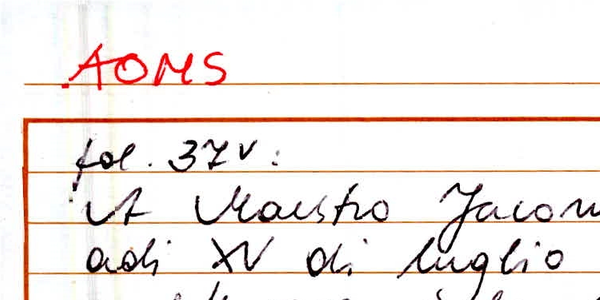 AOMS
fol. 37v:
A Maestro Jacom
adi XV di luglio